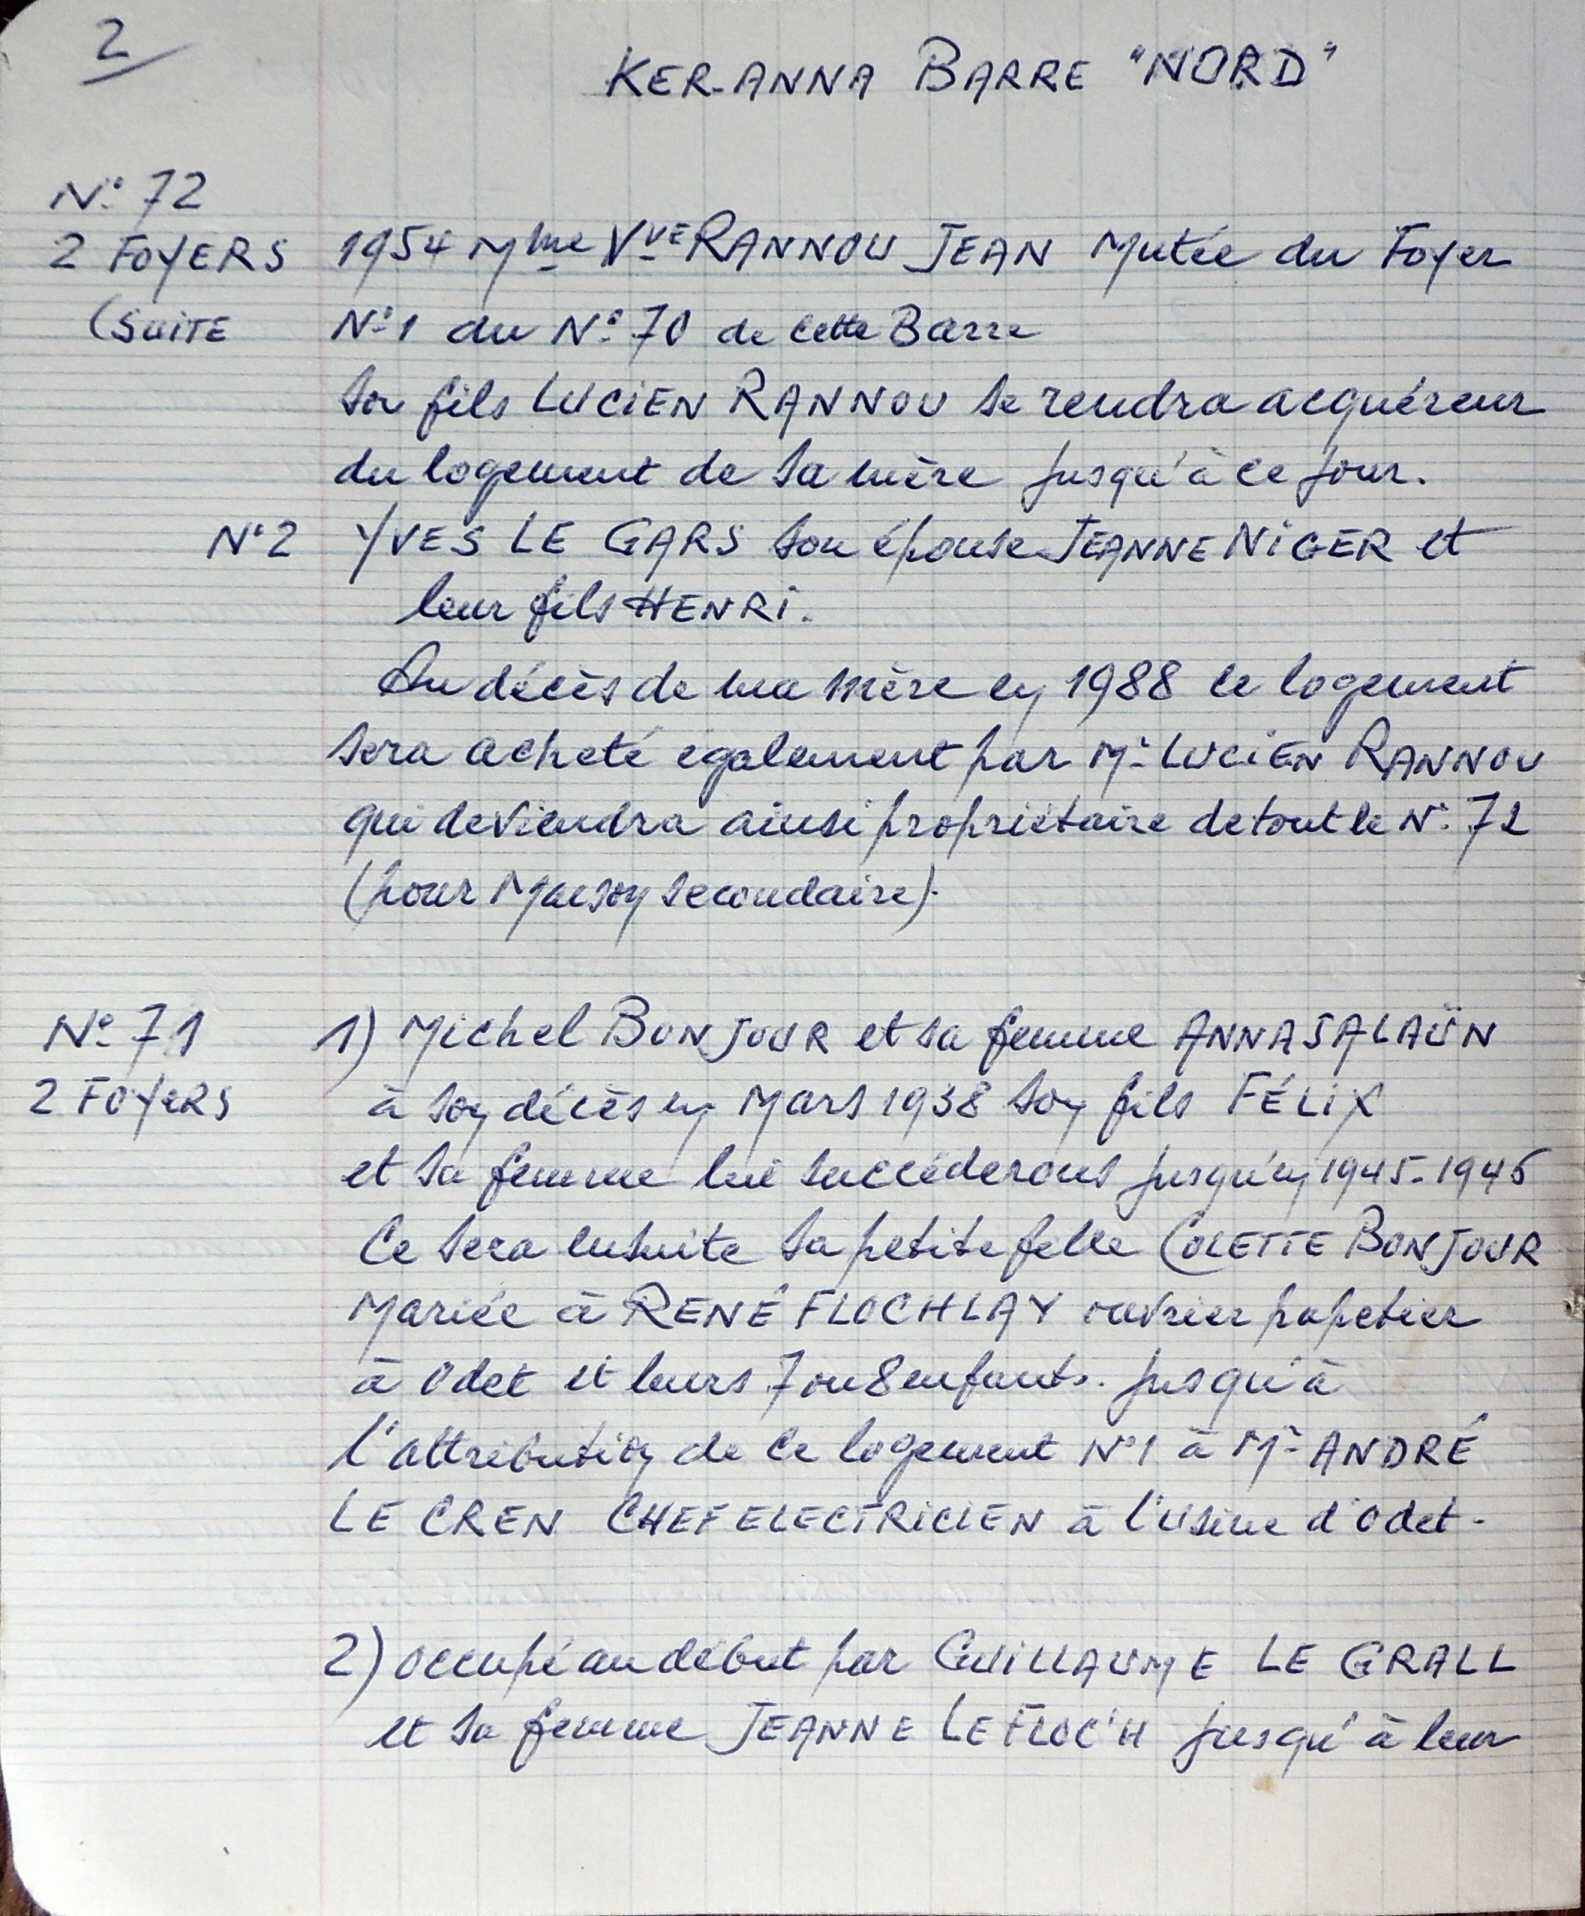 2
KER-ANNA BARRE "NORD"
N° 72
2 FOYERS 1954 Mme Vve RANNOU JEAN Mutée du Foyer
(SUITE N°1 du N° 70 de cette Barre
Son fils LUCIEN RANNOU se rendra acquéreur
du logement de sa mère jusqu'à ce jour.
N°2 YVES LE GARS son épouse JEANNE NIGER et
leur fils HENRI.
Au décès de ma mère en 1988 le logement
sera acheté également par Mr LUCIEN RANNOU
qui deviendra ainsi propriétaire de tout le N° 72
(pour Maison secondaire).
N° 71 1) Michel BONJOUR et sa femme ANNA SALAÜN
2 FOYERS à son décès en Mars 1938 son fils FÉLIX
et sa femme lui succéderons jusqu'en 1945-1946
Ce sera ensuite sa petite fille COLETTE BONJOUR
Mariée à RENÉ FLOCHLAY ouvrier papetier
à Odet et leurs 7 ou 8 enfants. jusqu'à
l'attribution de ce logement N°1 à Mr ANDRÉ
LE CREN CHEF ELECTRICIEN à l'Usine d'Odet-
2) occupé au début par GUILLAUME LE GRALL
et sa femme JEANNE LE FLOC'H jusqu'à leur